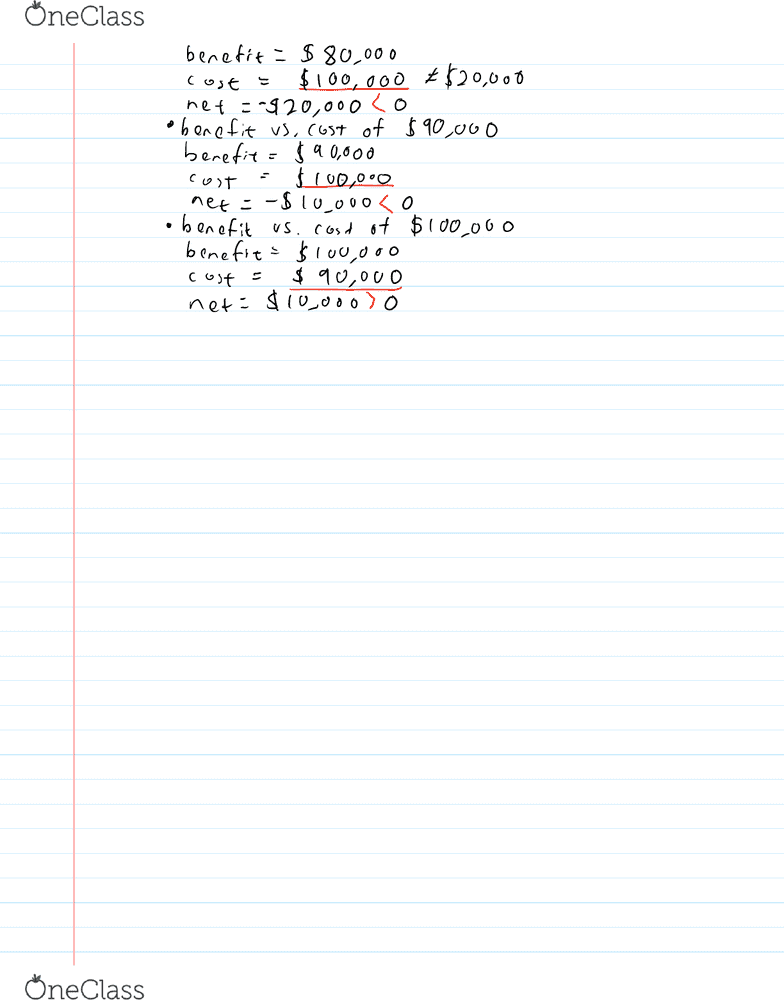 OneClass
benefit = $80,000
cost = $100,000 ≠ $20,000
net = -$20,000 < 0
• benefit vs. cost of $90,000
benefit = $90,000
cost = $100,000
net = -$10,000 < 0
• benefit vs. cost of $100,000
benefit = $100,000
cost = $90,000
net = $10,000 > 0
OneClass